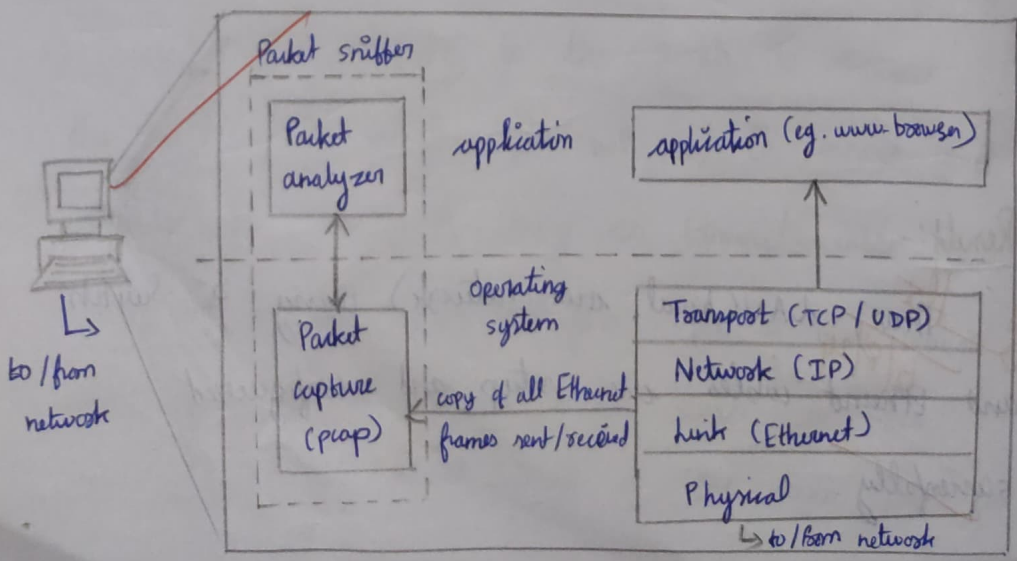 Packet sniffer
Packet
analyzer
application
application (eg. www browser)
operating
system
Packet
capture
(pcap)
copy of all Ethernet
frames sent/received
Transport (TCP / UDP)
Network (IP)
Link (Ethernet)
Physical
to/from network
to/from
network